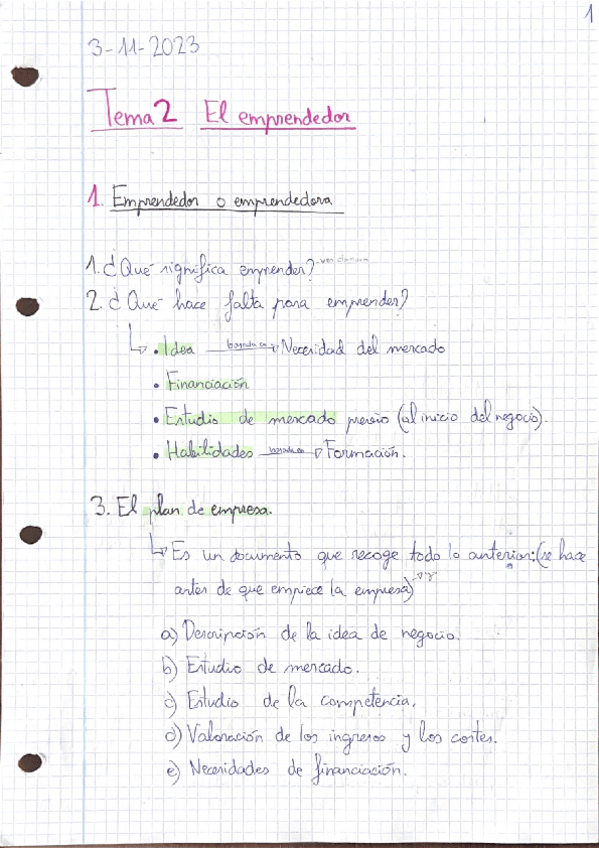 1
3-11-2023
Tema 2 El emprendedor
1. Emprendedor o emprendedora
1. ¿Qué significa emprender?
2. ¿Qué hace falta para emprender?
• Idea basada en → Necesidad del mercado
• Financiación
• Estudio de mercado previo (al inicio del negocio).
• Habilidades basada en → Formación.
3. El plan de empresa.
Es un documento que recoge todo lo anterior: (se hace
antes de que empiece la empresa)
a) Descripción de la idea de negocio.
b) Estudio de mercado.
c) Estudio de la competencia.
d) Valoración de los ingresos y los costes.
e) Necesidades de financiación.